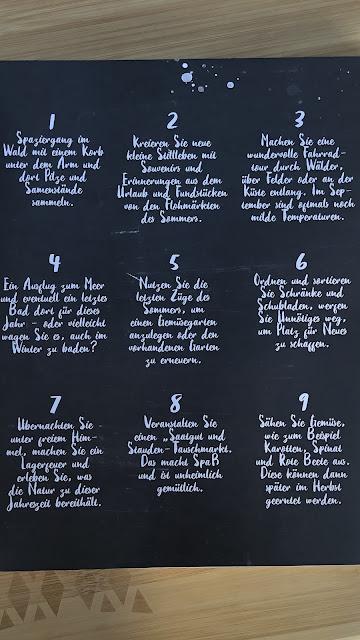 1
Spaziergang im
Wald mit einem Korb
unter dem Arm und
dort Pilze und
Samenstände
sammeln.
2
Kreieren Sie neue
kleine Stillleben mit
Souvenirs und
Erinnerungen aus dem
Urlaub und Fundstücken
von den Flohmärkten
des Sommers.
3
Machen Sie eine
wundervolle Fahrrad-
tour durch Wälder,
über Felder oder an der
Küste entlang. Im Sep-
tember sind oftmals noch
milde Temperaturen.
4
Ein Ausflug zum Meer
und eventuell ein letztes
Bad dort für dieses
Jahr - oder vielleicht
wagen Sie es, auch im
Winter zu baden?
5
Nutzen Sie die
letzten Züge des
Sommers, um
einen Gemüsegarten
anzulegen oder den
vorhandenen Garten
zu erneuern.
6
Ordnen und sortieren
Sie Schränke und
Schubladen, werfen
Sie Unnötiges weg,
um Platz für Neues
zu schaffen.
7
Übernachten Sie
unter freiem Him-
mel, machen Sie ein
Lagerfeuer und
erleben Sie, was
die Natur zu dieser
Jahreszeit bereithält.
8
Veranstalten Sie
einen „Saatgut und
Stauden-Tauschmarkt.
Das macht Spaß
und ist unheimlich
gemütlich.
9
Sähen Sie Gemüse,
wie zum Beispiel
Karotten, Spinat
und Rote Beete aus.
Diese können dann
später im Herbst
geerntet werden.